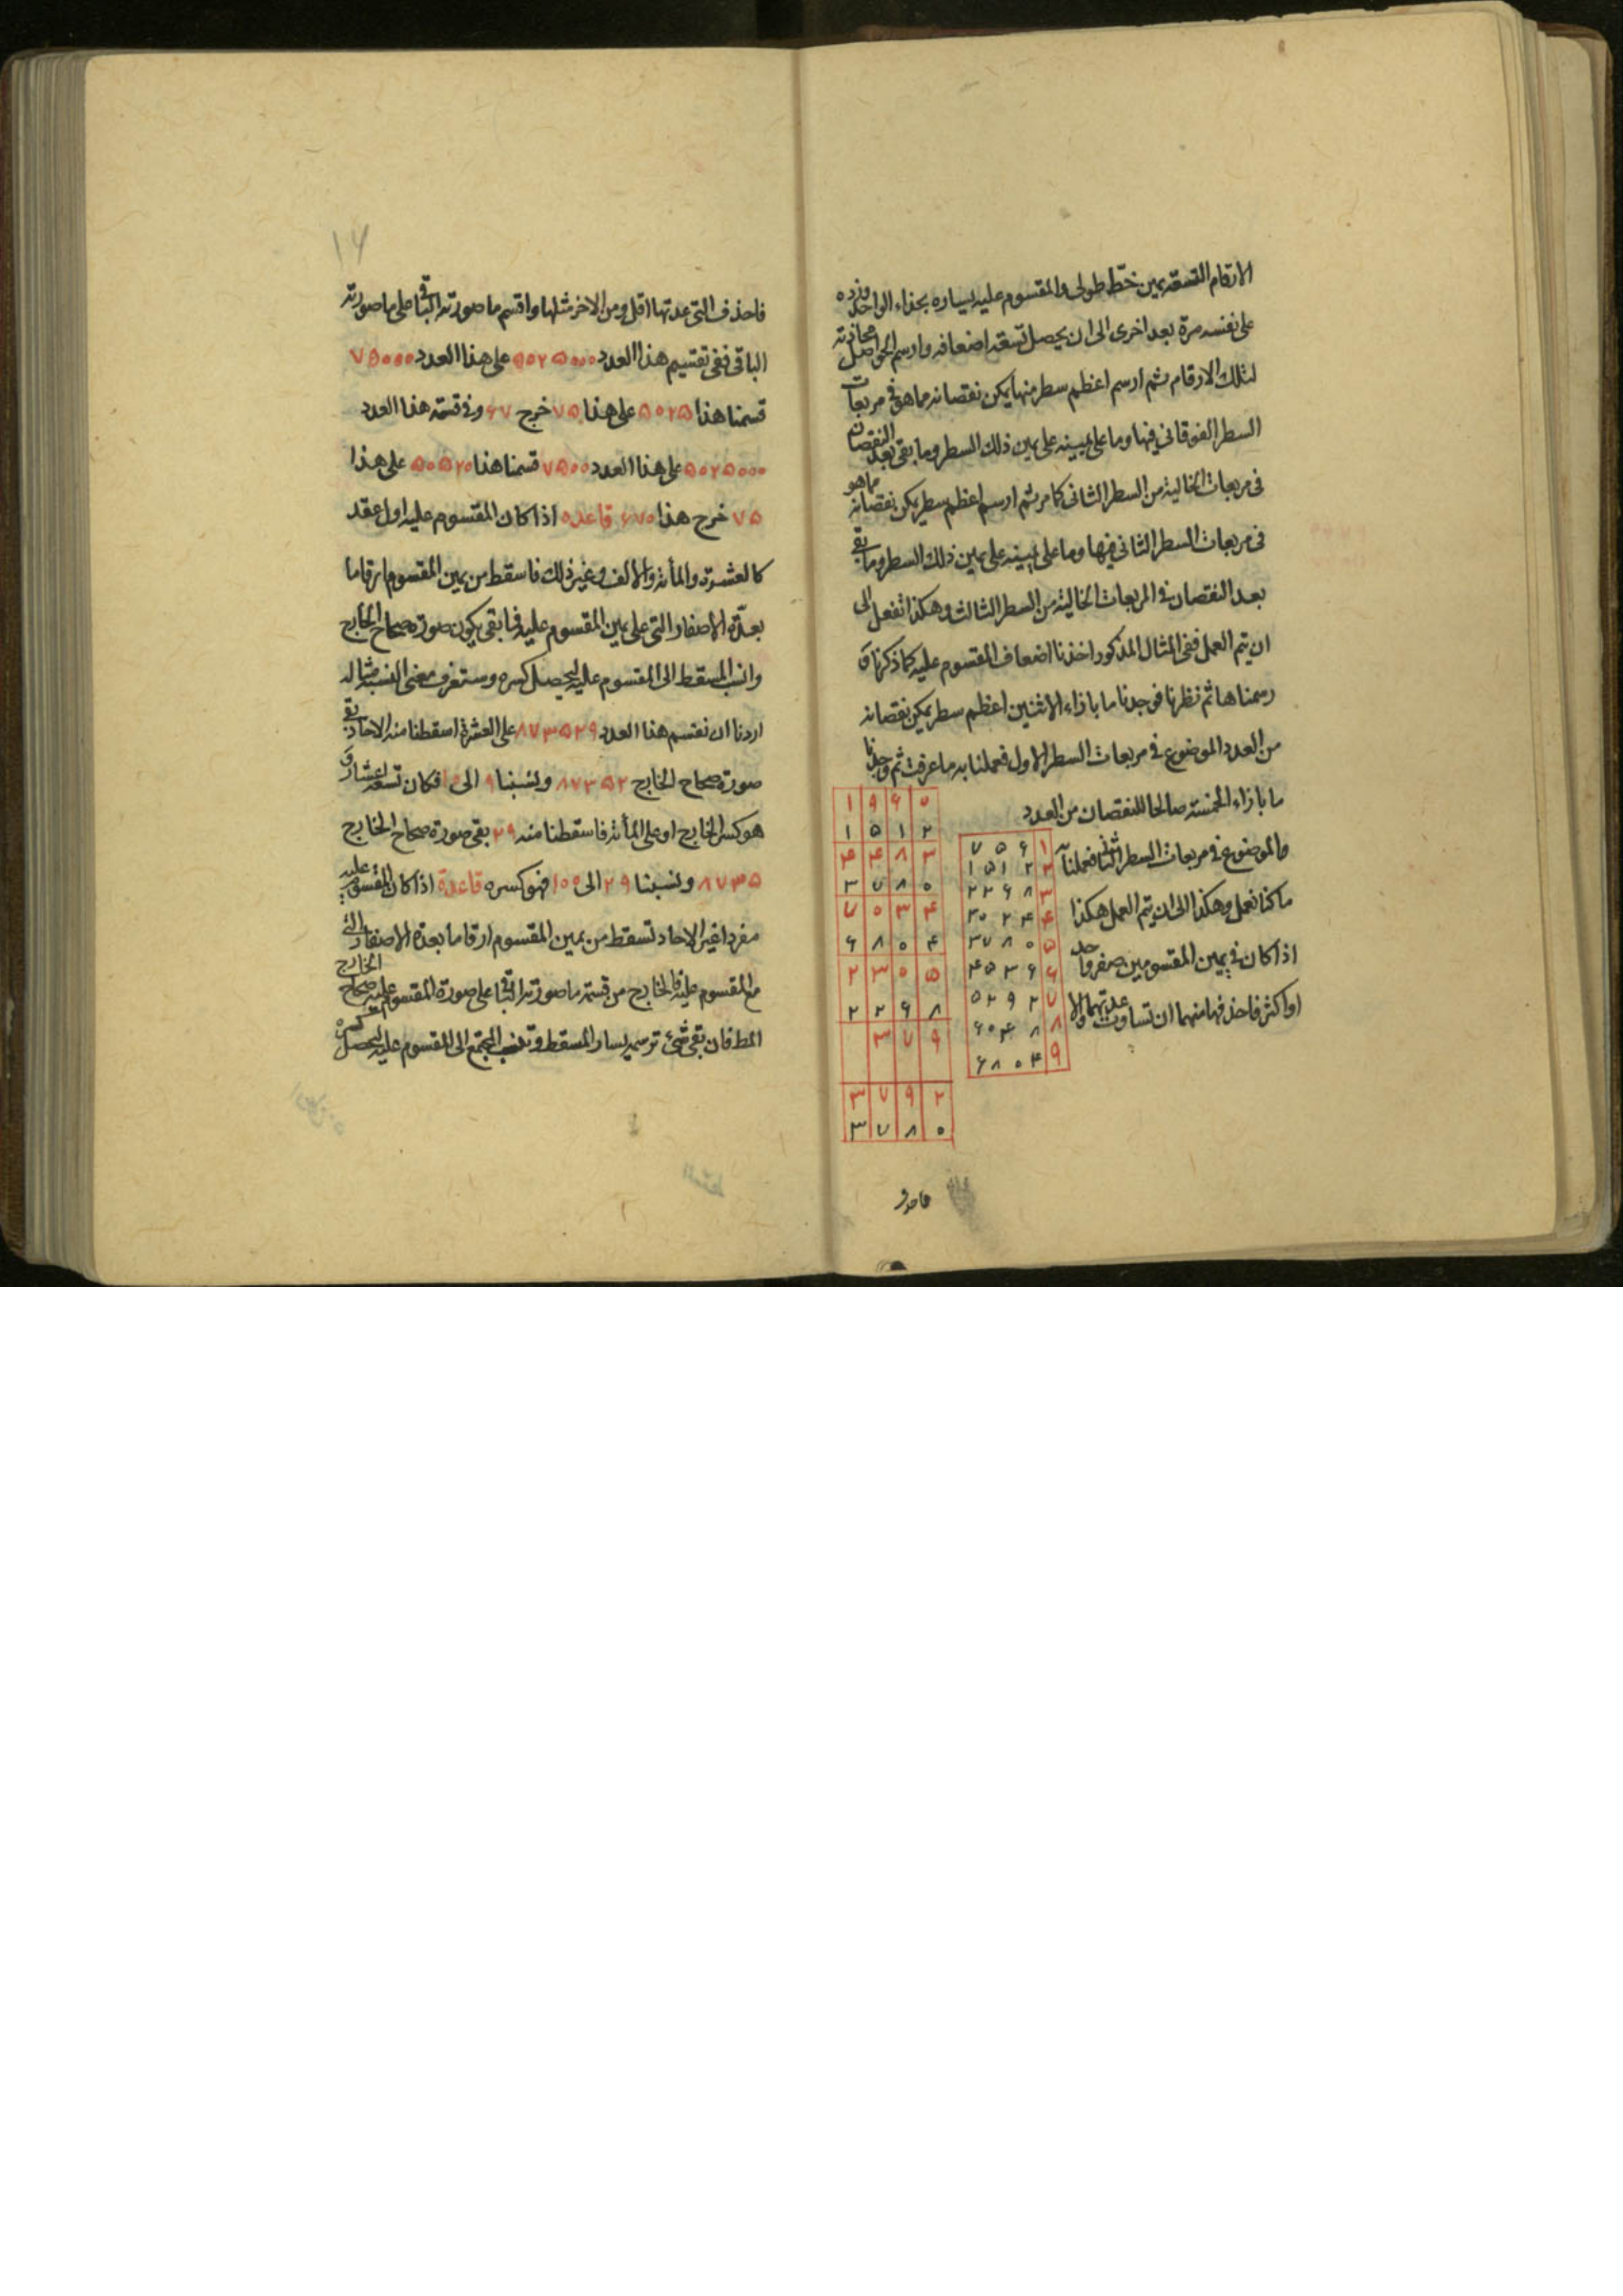 الارقام التسعة بيمين خط طولى والمقسوم عليه بيساره بحذاء الواحد وزده
على نفسه مرة بعد اخرى الى ان يحصل تسعة اضعافه وارسم الحواصل محاذية
لتلك الارقام ثم ارسم اعظم سطر منها يمكن نقصانه مما هو فى مربعات
السطر الفوقانى فيها وما على يمينه على يمين ذلك السطر وما بقى بعد النقصان
فى مربعات الخالية من السطر الثانى كما مر ثم ارسم اعظم سطر يمكن نقصانه مما هو
فى مربعات السطر الثانى فيها وما على يمينه على يمين ذلك السطر وما بقى
بعد النقصان فى المربعات الخالية من السطر الثالث وهكذا تفعل الى
ان يتم العمل ففى المثال المذكور اخذنا اضعاف المقسوم عليه كما ذكرنا و
رسمناها ثم نظرنا فوجدنا ما بازاء الاثنين اعظم سطر يمكن نقصانه
من العدد الموضوع فى مربعات السطر الاول فعملنا به ما عرفت ثم وجدنا
ما بازاء الخمسة صالحا للنقصان من العدد
الموضوع فى مربعات السطر الثانى فعملنا به
ما كنا نعمل وهكذا الى ان يتم العمل هكذا
اذا كان فى يمين المقسومين صفر واحد
او اكثر فاحذفها منهما ان تساوت عدتهما والا
۱ ۷۵۶
۲ ۱۵۱۲
۳ ۲۲۶۸
۴ ۳۰۲۴
۵ ۳۷۸۰
۶ ۴۵۳۶
۷ ۵۲۹۲
۸ ۶۰۴۸
۹ ۶۸۰۴
۱ ۹ ۶ ۰
۱ ۵ ۱ ۲
۴ ۴ ۸ ۳
۳ ۷ ۸ ۰
۷ ۰ ۳ ۴
۶ ۸ ۰ ۴
۲ ۳ ۰ ۵
۲ ۲ ۶ ۸
۳ ۷ ۹
۳ ۷ ۹ ۲
۳ ۷ ۸ ۰
فاحذف
۱۶
فاحذف التى عدتها اقل ومن الاخر مثلها واقسم ما صورته الباقى على ما صورته
الباقى ففى تقسيم هذا العدد ۵۰۲۵۰۰۰ على هذا العدد ۷۵۰۰۰
قسمنا هذا ۵۰۲۵ على هذا ۷۵ خرج ۶۷ وفى قسمة هذا العدد
۵۰۲۵۰۰۰ على هذا العدد ۷۵۰۰ قسمنا هذا ۵۰۲۵۰ على هذا
۷۵ خرج هذا ۶۷۰ قاعده اذا كان المقسوم عليه اول عقد
كالعشرة والمأته والالف وغير ذلك فاسقط من يمين المقسوم ارقاما
بعدة الاصفار التى على يمين المقسوم عليه فما بقى يكون صورة صحاح الخارج
وانسب المسقط الى المقسوم عليه ليحصل كسره وستعرف معنى النسبة مثاله
اردنا ان نقسم هذا العدد ۸۷۳۵۲۹ على العشرة اسقطنا منه الاحاد بقى
صورة صحاح الخارج ۸۷۳۵۲ ونسبنا ۹ الى ۱۰ فكان تسعة اعشار و
هو كسر الخارج او على المأته فاسقطنا منه ۲۹ بقى صورة صحاح الخارج
۸۷۳۵ ونسبنا ۲۹ الى ۱۰۰ فهو كسره قاعدة اذا كان المقسوم عليه
مفردا غير الاحاد تسقط من يمين المقسوم ارقاما بعدة الاصفار التى
مع المقسوم عليه فالخارج من قسمة ما صورته الباقى على صورة المقسوم عليه صحاح الخارج
المط فان بقى شئ ترسمه بيسار المسقط وتنسب المجتمع الى المقسوم عليه ليحصل كسره